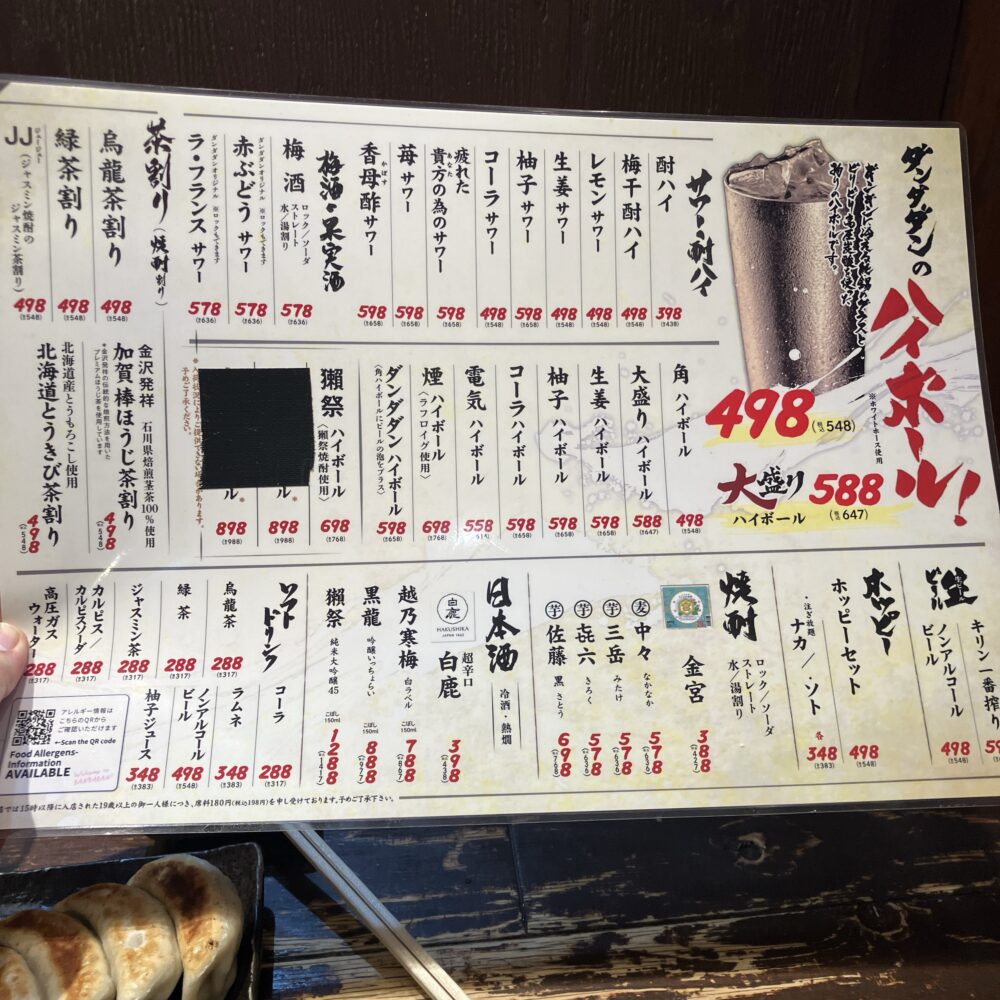 ダンダダンの
ハイボール!
※ホワイトホース使用
498(税込548)
大盛り
ハイボール
588(税込647)
サワー・酎ハイ
酎ハイ
398
(¥438)
梅干酎ハイ
498
(¥548)
レモンサワー
498
(¥548)
生姜サワー
598
(¥658)
柚子サワー
598
(¥658)
コーラサワー
498
(¥548)
疲れた
貴方の為のサワー
あなた
598
(¥658)
苺サワー
598
(¥658)
香母酢サワー
かぼす
598
(¥658)
梅酒・果実酒
梅酒
ロック/ソーダ
ストレート
水/湯割り
578
(¥636)
赤ぶどうサワー
ダンダダンオリジナル ※ロックもできます
578
(¥636)
ラ・フランスサワー
ダンダダンオリジナル ※ロックもできます
578
(¥636)
茶割り(焼酎割り)
烏龍茶割り
498
(¥548)
緑茶割り
498
(¥548)
JJ
ジェージェー
(ジャスミン焼酎の
ジャスミン茶割り)
498
(¥548)
角ハイボール
498
(¥548)
大盛りハイボール
588
(¥647)
生姜ハイボール
598
(¥658)
柚子ハイボール
598
(¥658)
コーラハイボール
598
(¥658)
電気ハイボール
558
煙ハイボール
(ラフロイグ使用)
698
ダンダダンハイボール
(角ハイボールにビールの泡をプラス)
598
(¥658)
獺祭ハイボール
(獺祭焼酎使用)
698
(¥768)
ル※
898
(¥988)
ル※
898
(¥988)
予めご了承ください。
金沢発祥
石川県焙煎茎茶100%使用
加賀棒ほうじ茶割り
※金沢発祥の伝統的な焙煎方法を用いた
プレミアムほうじ茶を使用しています
498
(¥548)
北海道産とうもろこし使用
北海道とうきび茶割り
498
(¥548)
生ビール
キリン一番搾り
ノンアルコール
ビール
498
(¥548)
ホッピー
ホッピーセット
498
(¥548)
・注ぎ放題
ナカ/・ソト
各
348
(¥383)
焼酎
ロック/ソーダ
ストレート
水/湯割り
金宮
388
(¥427)
麦 中々
なかなか
578
(¥636)
芋 三岳
みたけ
578
(¥636)
芋 㐂六
きろく
578
(¥636)
芋 佐藤 黒
さとう
698
(¥768)
日本酒
冷酒・熱燗
白鹿
HAKUSHIKA
JAPAN 1662
超辛口
白鹿
398
(¥438)
越乃寒梅
白ラベル
こぼし
150ml
788
(¥867)
黒龍
吟醸いっちょらい
こぼし
150ml
888
(¥977)
獺祭
純米大吟醸45
こぼし
150ml
1288
(¥1417)
ソフト
ドリンク
烏龍茶
288
(¥317)
緑茶
288
(¥317)
ジャスミン茶
288
(¥317)
カルピス/
カルピスソーダ
288
(¥317)
高圧ガス
ウォーター
288
(¥317)
コーラ
288
(¥317)
ラムネ
348
(¥383)
ノンアルコール
ビール
498
(¥548)
柚子ジュース
348
(¥383)
アレルギー情報は
こちらのQRから
ご確認いただけます
←Scan the QR code
Food Allergens-
Information
AVAILABLE
店では15時以降に入店された19歳以上の御一人様につき、席料180円(税込198円)を申し受けております。予めご了承下さい。